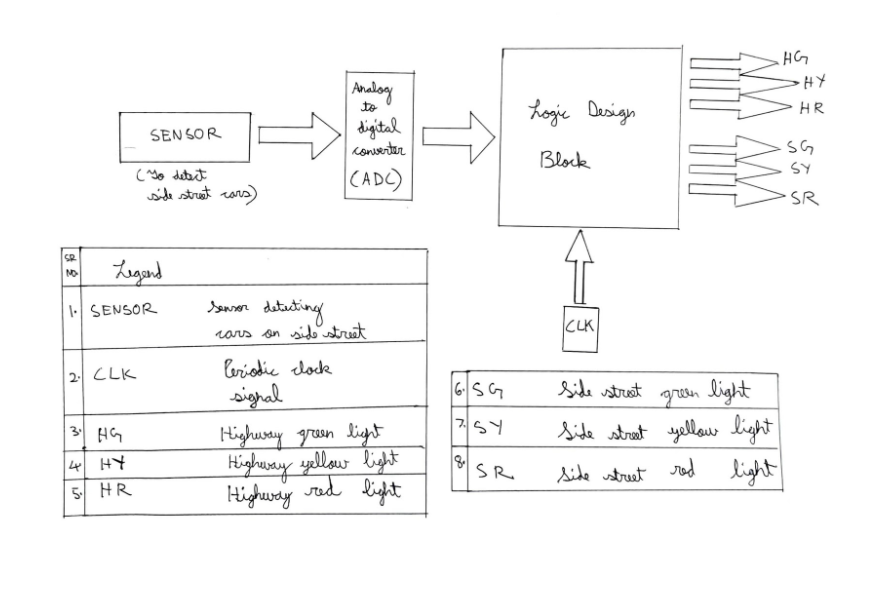 SENSOR
(To detect
side street cars)
Analog
to
digital
converter
(ADC)
Logic Design
Block
HG
HY
HR
SG
SY
SR
CLK
SR NO. Legend
1. SENSOR Sensor detecting
cars on side street
2. CLK Periodic clock
signal
3. HG Highway green light
4. HY Highway yellow light
5. HR Highway red light
6. SG Side street green light
7. SY Side street yellow light
8. SR Side street red light